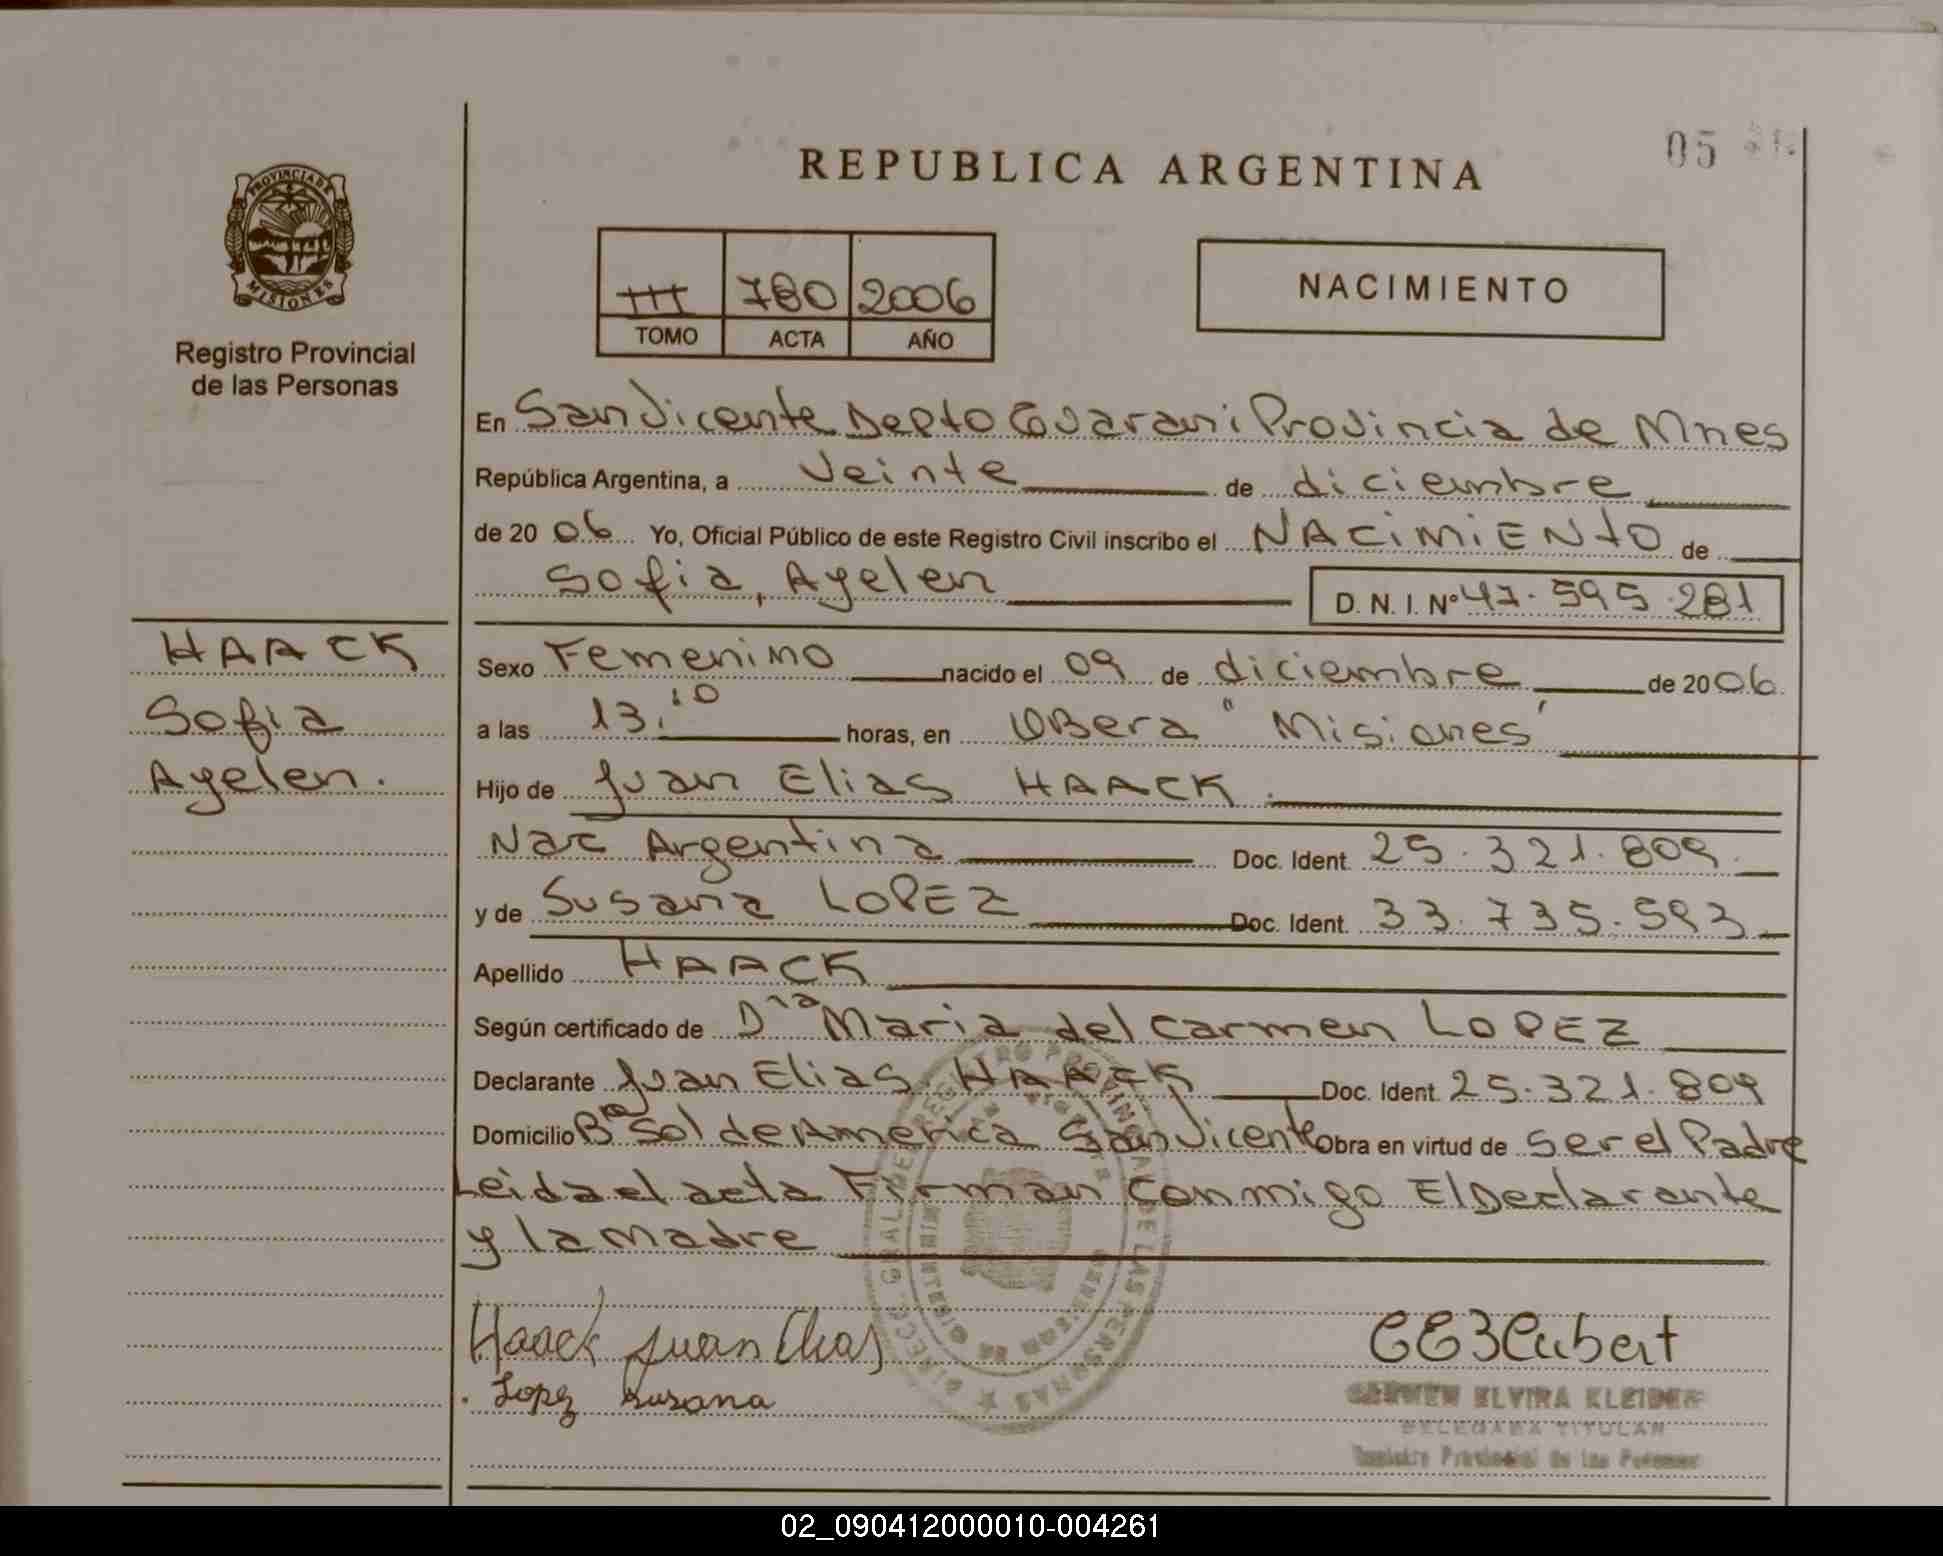 REPUBLICA ARGENTINA
05
PROVINCIA DE MISIONES
Registro Provincial
de las Personas
III 780 2006
TOMO ACTA AÑO
NACIMIENTO
En San Vicente Depto Guarani Provincia de Mnes
República Argentina, a Veinte de diciembre
de 20 06 Yo, Oficial Público de este Registro Civil inscribo el NACIMIENTO de
Sofia, Ayelen D. N. I. Nº 47.595.281
HAACK
Sofia
Ayelen.
Sexo Femenino nacido el 09 de diciembre de 20 06.
a las 13:10 horas, en OBera "Misiones"
Hijo de Juan Elias HAACK.
Nac Argentina Doc. Ident. 25.321.809.
y de Susana LOPEZ Doc. Ident. 33.735.593
Apellido HAACK
Según certificado de Dra Maria del Carmen LOPEZ
Declarante Juan Elias HAACK Doc. Ident. 25.321.809
Domicilio Bº Sol de America San Vicente Obra en virtud de ser el Padre
Leida el acta Firman Conmigo El Declarante
y la madre
Haack Juan Elias
Lopez Susana
CARMEN ELVIRA KLEIBER
DELEGADA TITULAR
Registro Provincial de las Personas
02_090412000010-004261